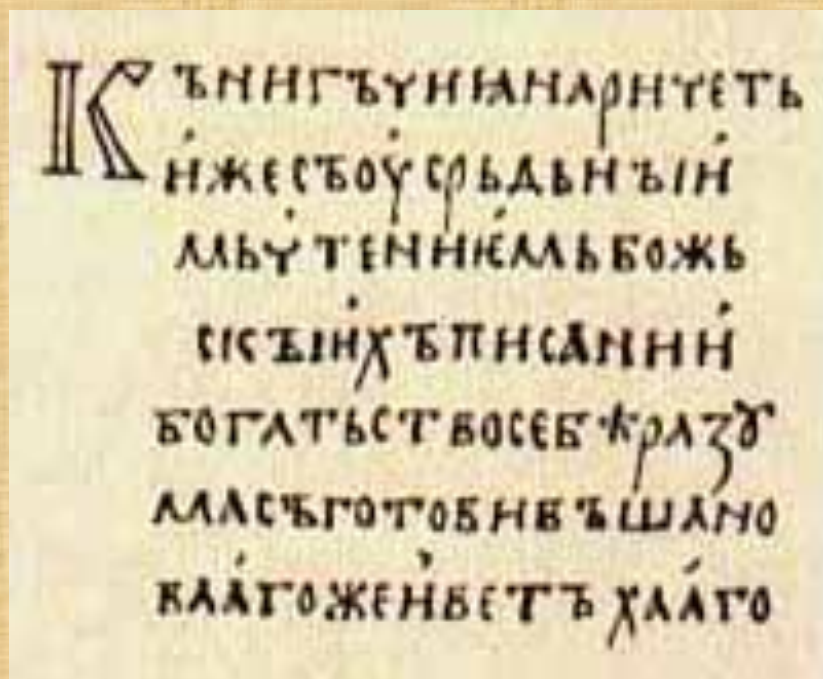 КЪНИГЪЧИꙖНАРИЧЕТЬ
И҆ЖЕСЪБОУ҆СРЬДЬНЪІИ҆
МЬЧ҆ТЕНИѤ҆МЬБОЖЬ
СКЪІИ҆ХЪПИСАНИИ҆
БОГАТЬСТВОСЕБѢРАЗꙊ
МАСЪГОТОВИВЪША҆НО
ВАА҆ГОЖЕИ҆ВЕТЪХАА҆ГО